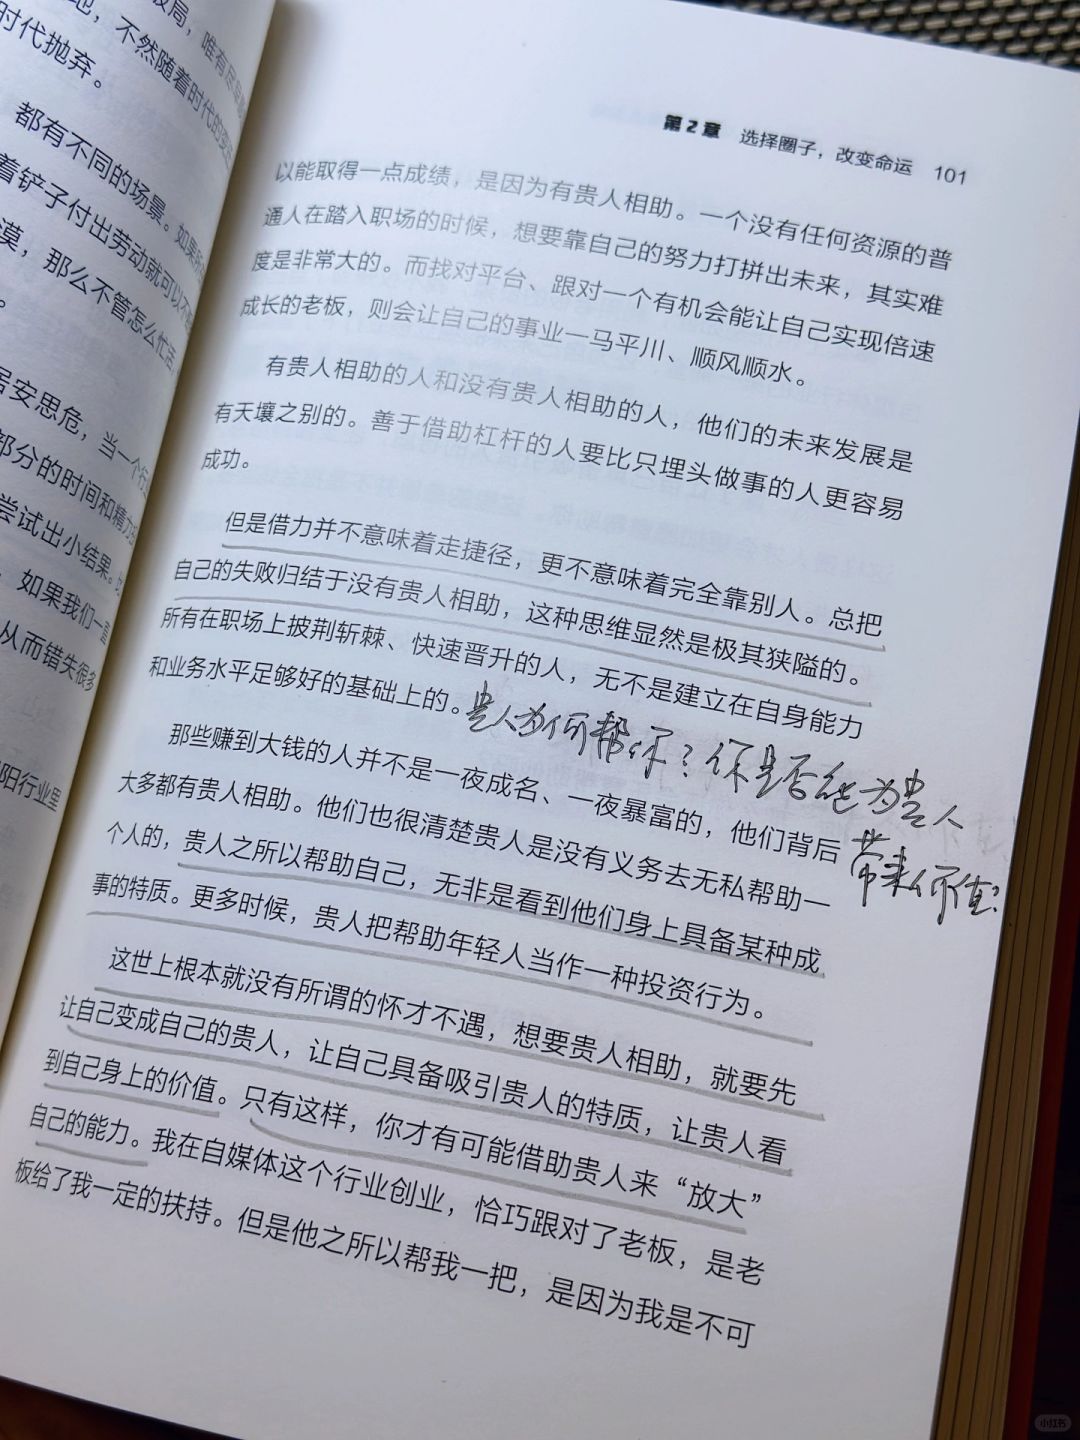 时代抛弃。
都有不同的场景。如果
着铲子付出劳动就可以不
漠，那么不管怎么忙活
居安思危，当一个行
部分的时间和精力
尝试出小结果。
，如果我们一直
从而错失很多
阳行业里
第2章 选择圈子，改变命运 101
以能取得一点成绩，是因为有贵人相助。一个没有任何资源的普
通人在踏入职场的时候，想要靠自己的努力打拼出未来，其实难
度是非常大的。而找对平台、跟对一个有机会能让自己实现倍速
成长的老板，则会让自己的事业一马平川、顺风顺水。
有贵人相助的人和没有贵人相助的人，他们的未来发展是
有天壤之别的。善于借助杠杆的人要比只埋头做事的人更容易
成功。
但是借力并不意味着走捷径，更不意味着完全靠别人。总把
自己的失败归结于没有贵人相助，这种思维显然是极其狭隘的。
所有在职场上披荆斩棘、快速晋升的人，无不是建立在自身能力
和业务水平足够好的基础上的。
贵人为何帮你？你是否能为贵人
带来价值？
那些赚到大钱的人并不是一夜成名、一夜暴富的，他们背后
大多都有贵人相助。他们也很清楚贵人是没有义务去无私帮助一
个人的，贵人之所以帮助自己，无非是看到他们身上具备某种成
事的特质。更多时候，贵人把帮助年轻人当作一种投资行为。
这世上根本就没有所谓的怀才不遇，想要贵人相助，就要先
让自己变成自己的贵人，让自己具备吸引贵人的特质，让贵人看
到自己身上的价值。只有这样，你才有可能借助贵人来“放大”
自己的能力。我在自媒体这个行业创业，恰巧跟对了老板，是老
板给了我一定的扶持。但是他之所以帮我一把，是因为我是不可
小红书